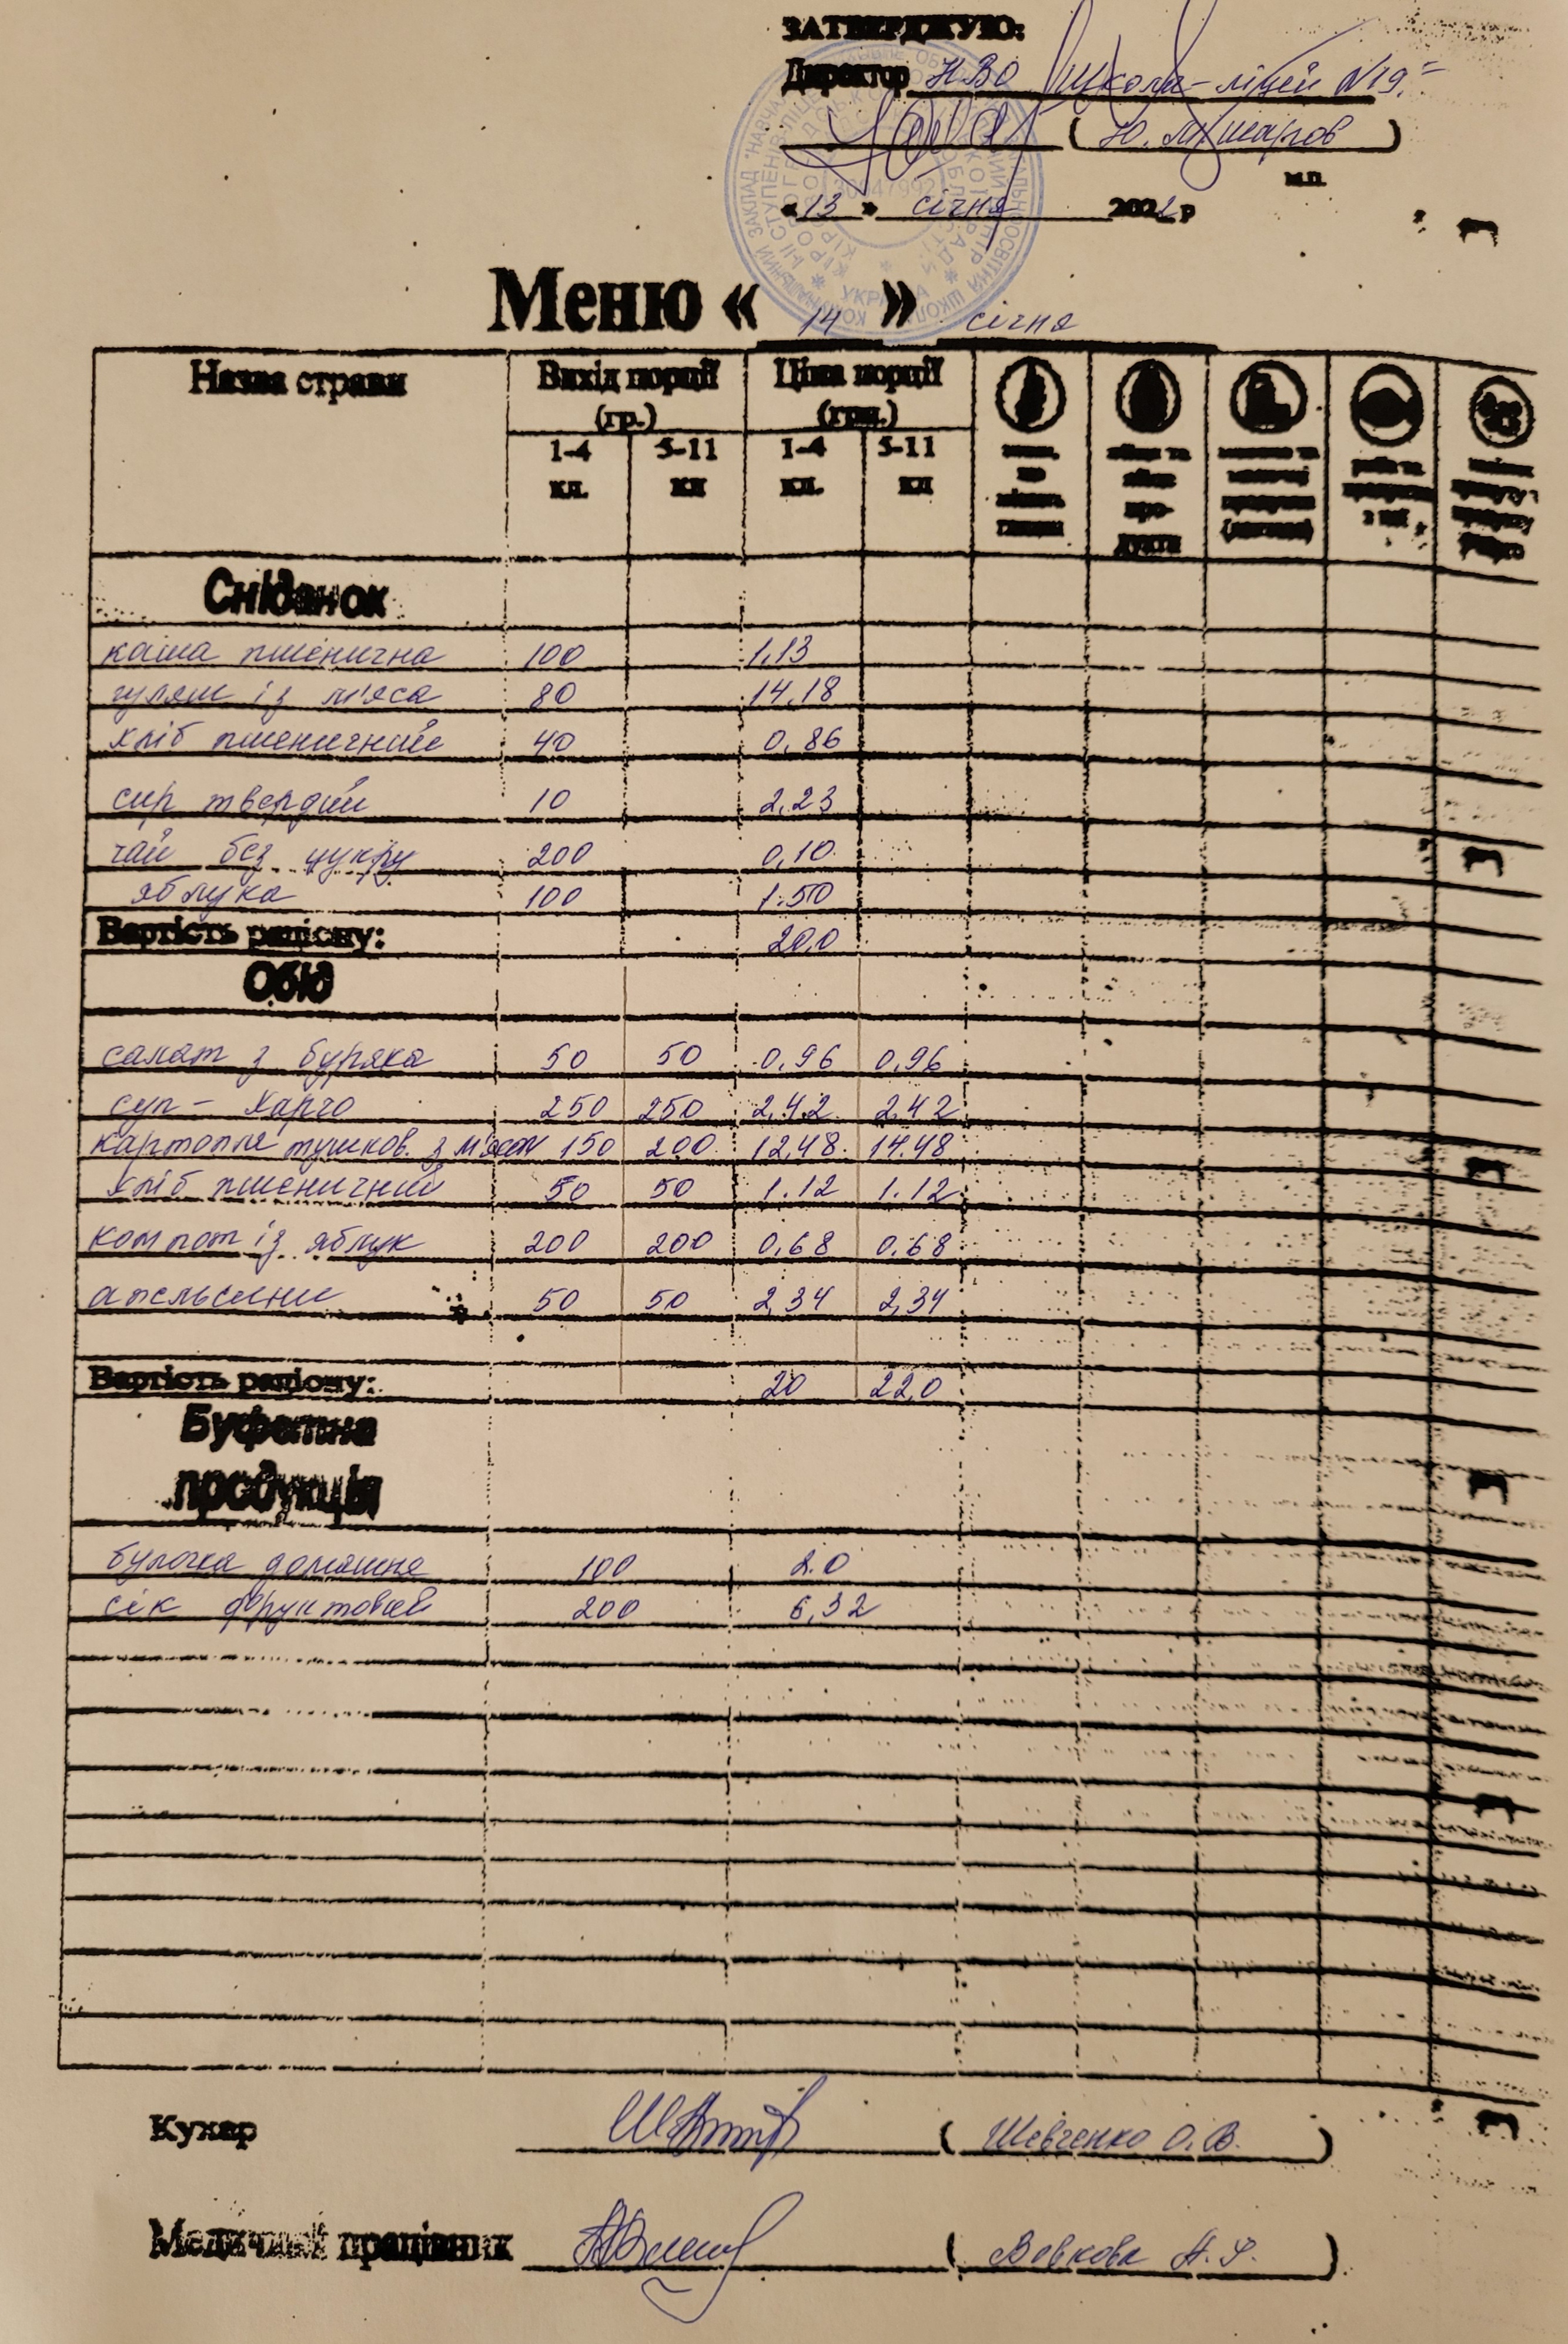 ЗАТВЕРДЖУЮ:
Директор НВО школи-ліцей №19
( Ю. Мішаров )
м.п.
« 13 » січня 2022 р
Меню « 14 » січня
Назва страви Вихід порції (гр.) Ціна порції (грн.)
1-4 кл. 5-11 кл 1-4 кл. 5-11 кл
Сніданок
каша пшенична 100 1,13
гуляш із м'яса 80 14,18
хліб пшеничний 40 0,86
сир твердий 10 2,23
чай без цукру 200 0,10
яблука 100 1.50
Вартість раціону: 20,0
Обід
салат з буряка 50 50 0,96 0,96
суп - харчо 250 250 2,42 2,42
картопля тушков. з м'ясом 150 200 12,48 14.48
хліб пшеничний 50 50 1.12 1.12
компот із яблук 200 200 0,68 0,68
апельсини 50 50 2,34 2,34
Вартість раціону: 20 22,0
Буфетна
продукція
булочка домашня 100 2.0
сік фруктовий 200 6,32
Кухар ( Шевченко О. В. )
Медичний працівник ( Вовкова А. Ф. )